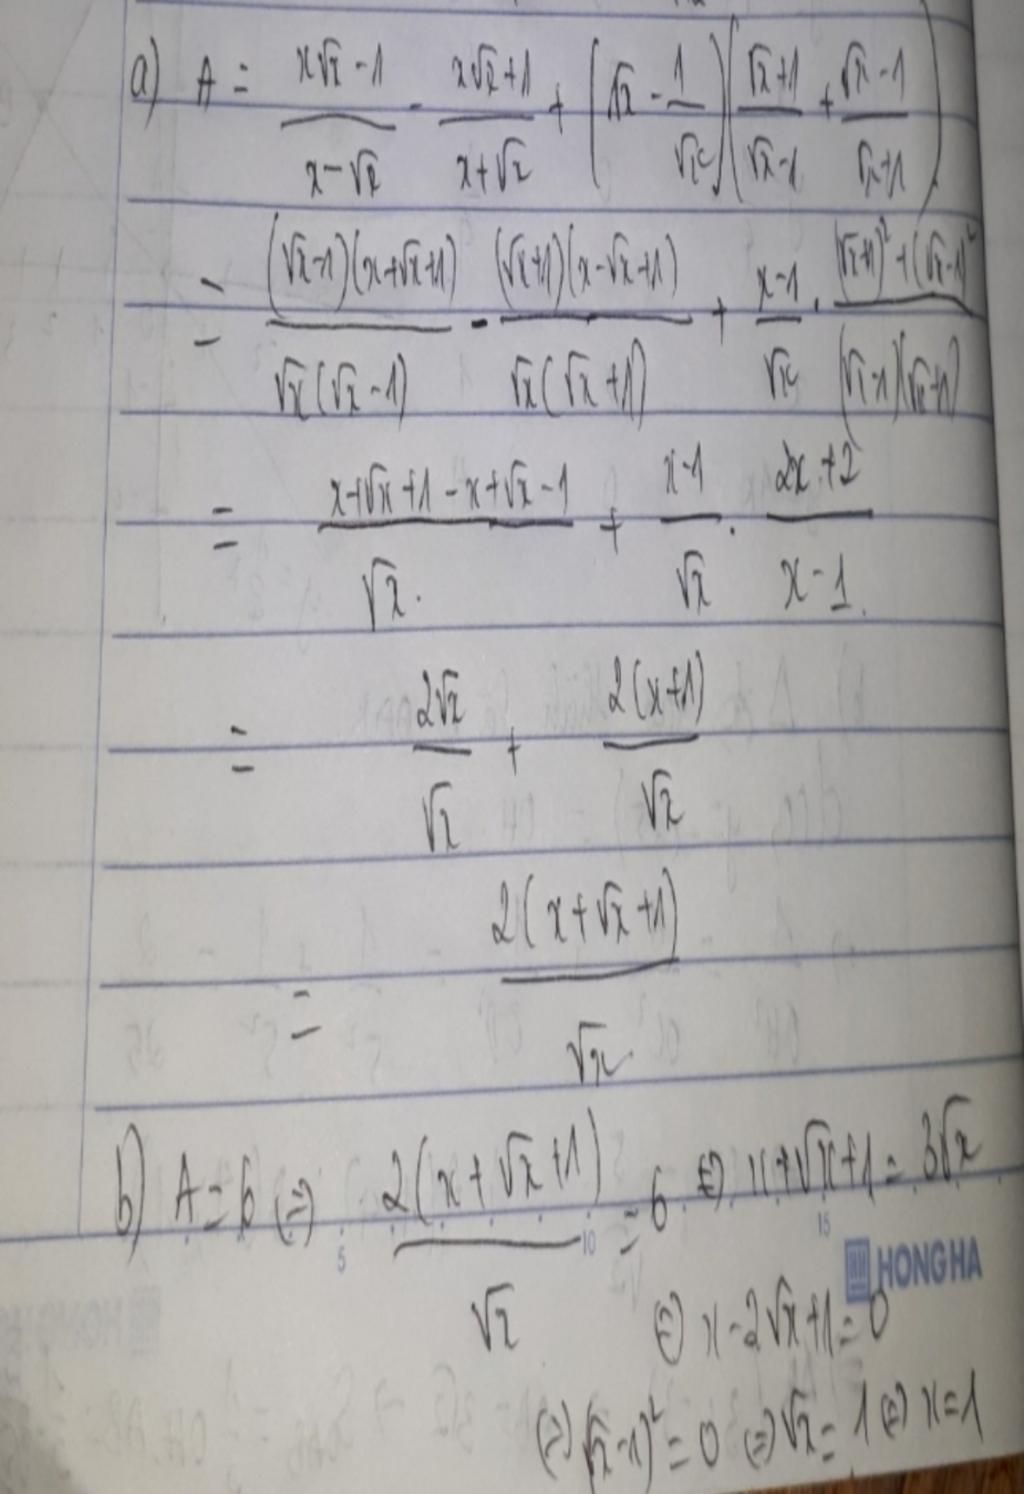 a) A = (x√x - 1)/(x - √x) - (x√x + 1)/(x + √x) + (√x - 1/√x)((√x + 1)/(√x - 1) + (√x - 1)/(√x + 1))
= (√x - 1)(x + √x + 1)/√x(√x - 1) - (√x + 1)(x - √x + 1)/√x(√x + 1) + (x - 1)/√x . ((√x + 1)² + (√x - 1)²)/(√x - 1)(√x + 1)
= (x + √x + 1 - x + √x - 1)/√x + (x - 1)/√x . (2x + 2)/(x - 1)
= 2√x/√x + 2(x + 1)/√x
= 2(x + √x + 1)/√x
b) A = 6 ⇔ 2(x + √x + 1)/√x = 6 ⇔ x + √x + 1 = 3√x
5 10 15 HONG HA
⇔ x - 2√x + 1 = 0
⇔ (√x - 1)² = 0 ⇔ √x = 1 ⇔ x = 1